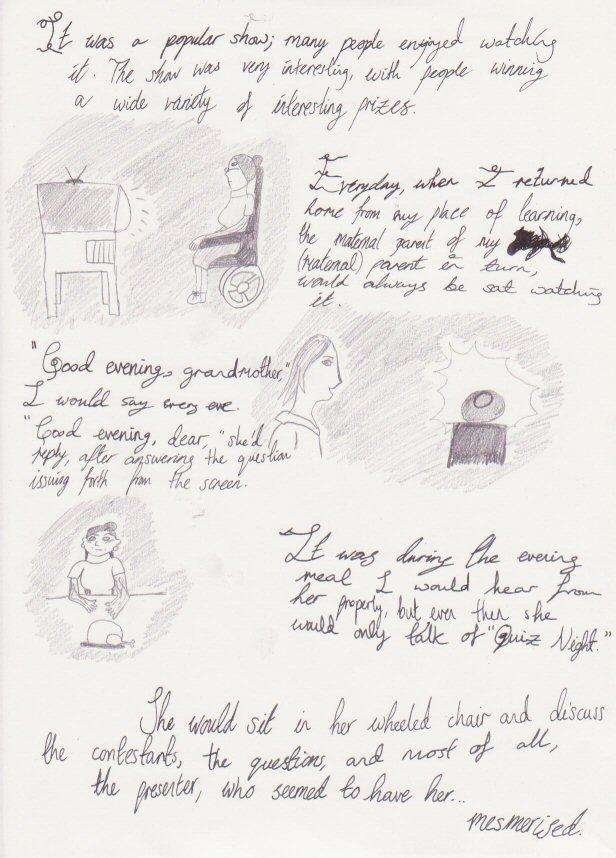 It was a popular show; many people enjoyed watching
it. The show was very interesting, with people winning
a wide variety of interesting prizes.
Everyday, when I returned
home from my place of learning,
the maternal parent of my
(maternal) parent in turn,
would always be sat watching
it.
"Good evening, grandmother,"
I would say every eve.
"Good evening, dear," she'd
reply, after answering the question
issuing forth from the screen.
It was during the evening
meal I would hear from
her properly, but even then she
would only talk of "Quiz Night."
She would sit in her wheeled chair and discuss
the contestants, the questions, and most of all,
the presenter, who seemed to have her...
mesmerised.